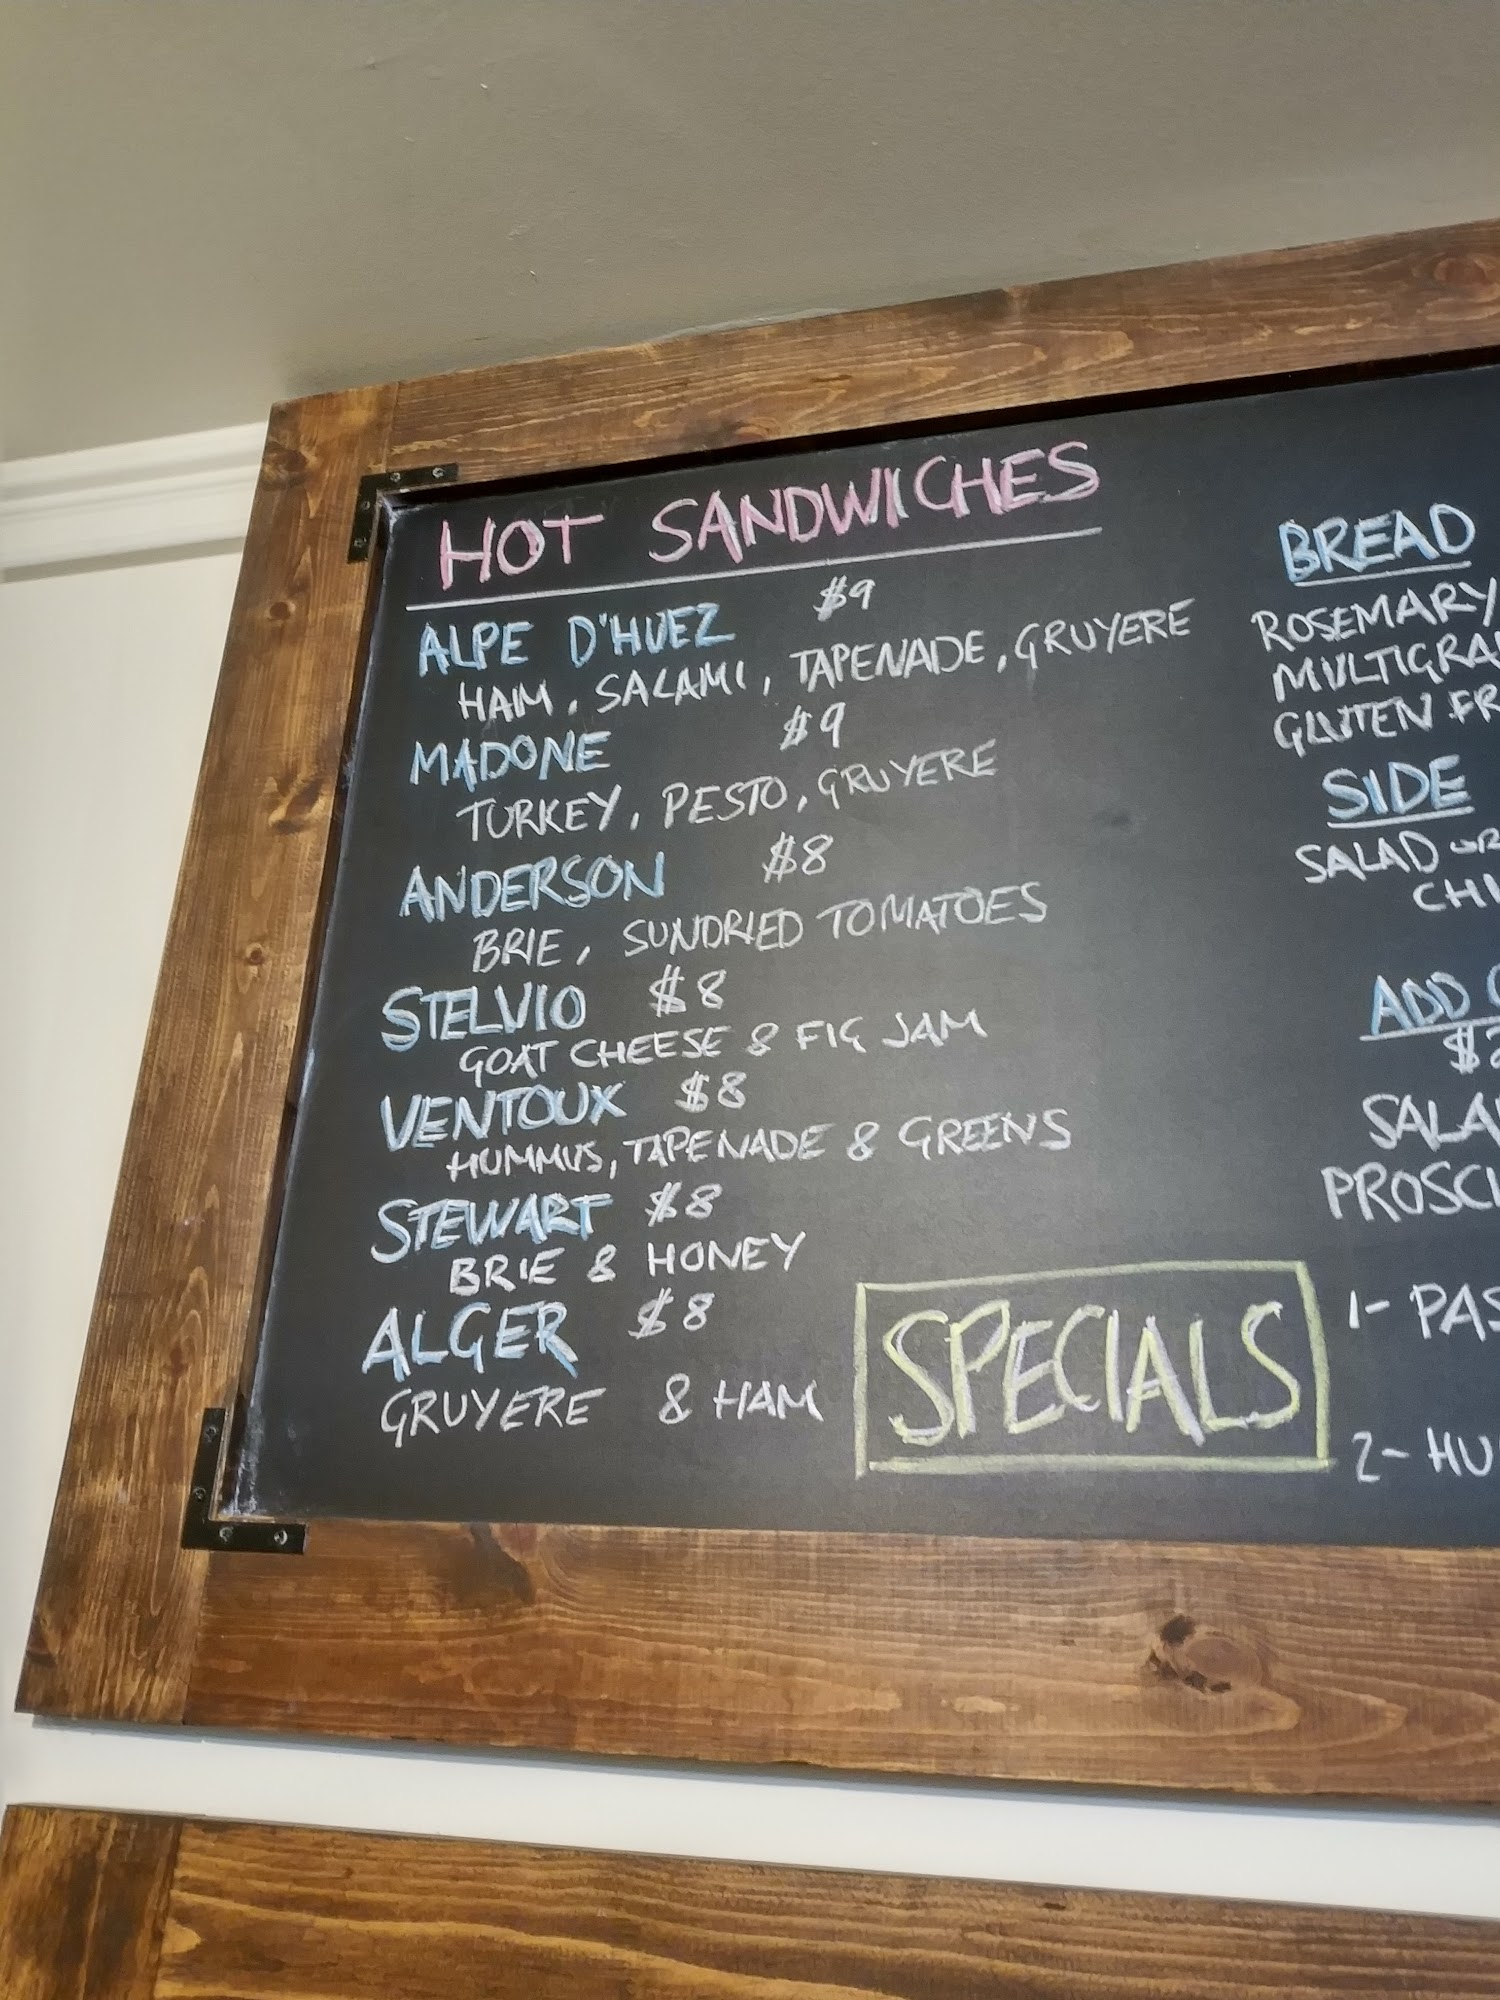 HOT SANDWICHES
ALPE D'HUEZ $9
HAM, SALAMI, TAPENADE, GRUYERE
MADONE $9
TURKEY, PESTO, GRUYERE
ANDERSON $8
BRIE, SUNDRIED TOMATOES
STELVIO $8
GOAT CHEESE & FIG JAM
VENTOUX $8
HUMMUS, TAPENADE & GREENS
STEWART $8
BRIE & HONEY
ALGER $8
GRUYERE & HAM
BREAD
ROSEMARY
MULTIGRA
GLUTEN FR
SIDE
SALAD OR
CHI
ADD
$2
SALA
PROSCI
SPECIALS
1- PAS
2- HU